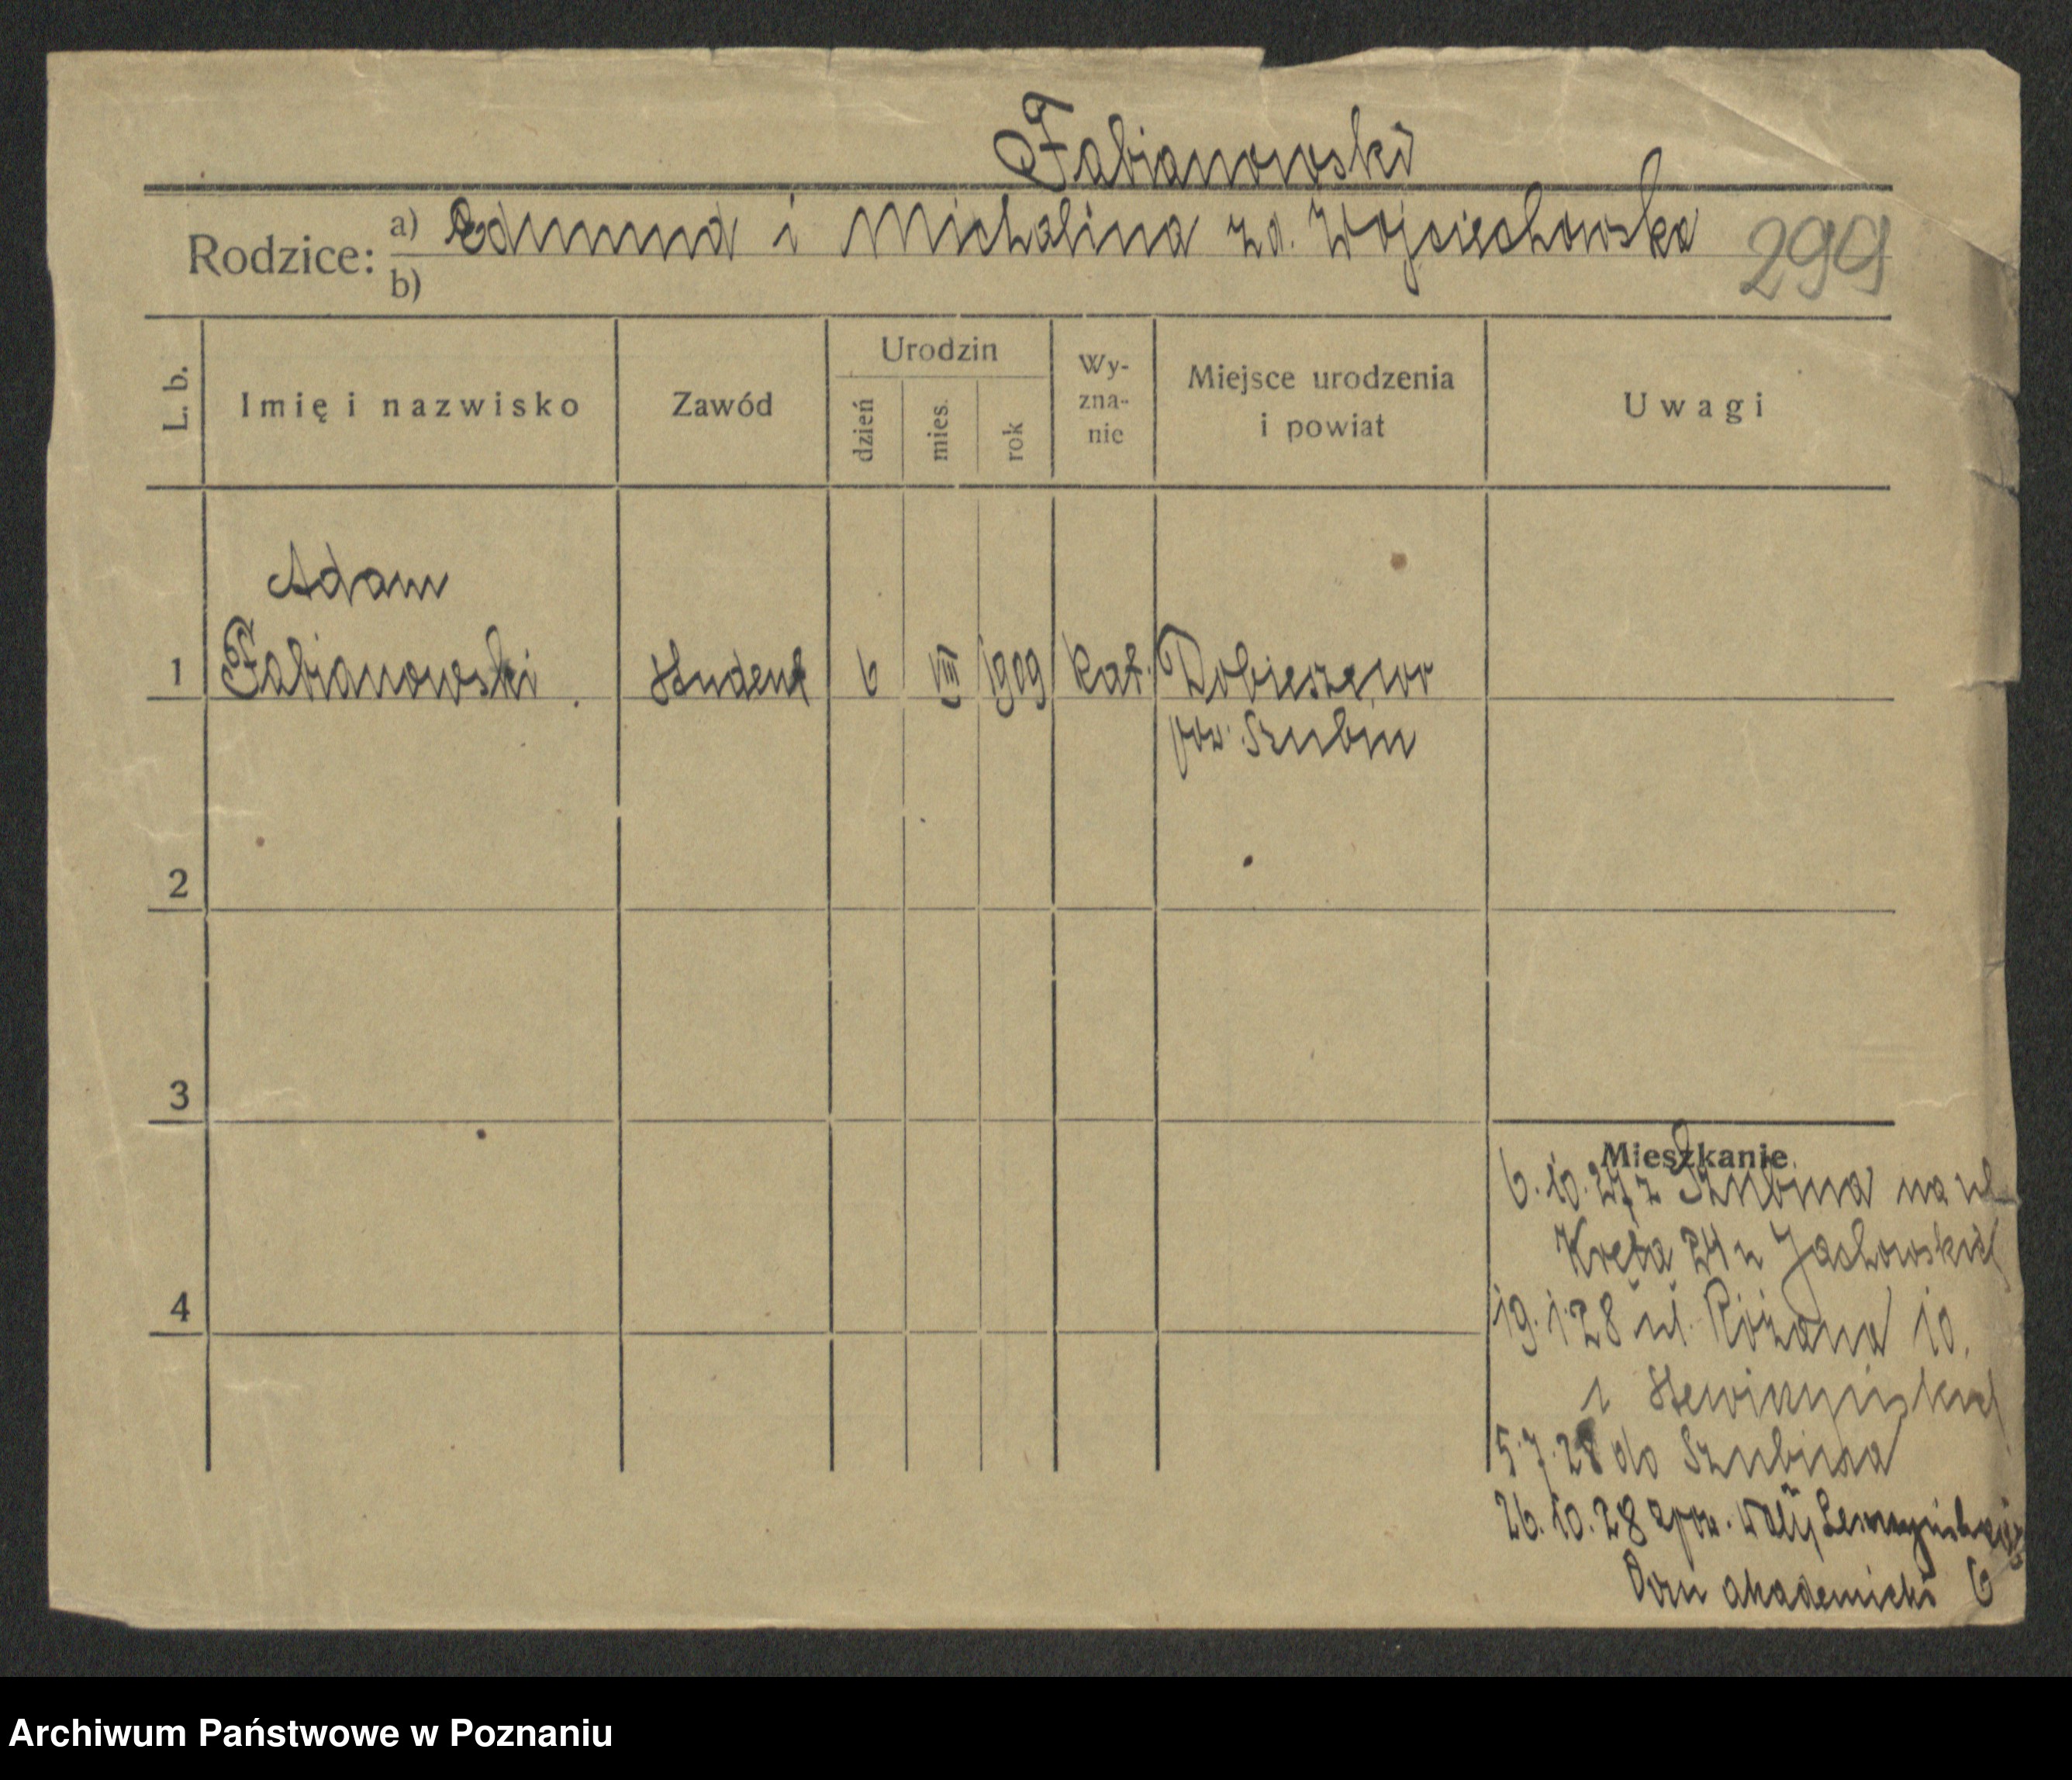 Fabianowski
Rodzice: a) Edmund i Michalina zd. Wojciechowska 299
b)
L. b. Imię i nazwisko Zawód Urodzin dzień mies. rok Wy-zna-nie Miejsce urodzenia i powiat Uwagi
Adam
1 Fabianowski student 6 VIII 1909 kat. Dobieszewo
pow. Szubin
2
3
Mieszkanie
6.10.27 z Szubina na ul
Kręta 24 u Jachowskich
4
19.1.28 ul. Różana 10.
5.7.28 do Szubina
26.10.28 zpow. Wały Leszczyńskiego
Dom akademicki 6
Archiwum Państwowe w Poznaniu